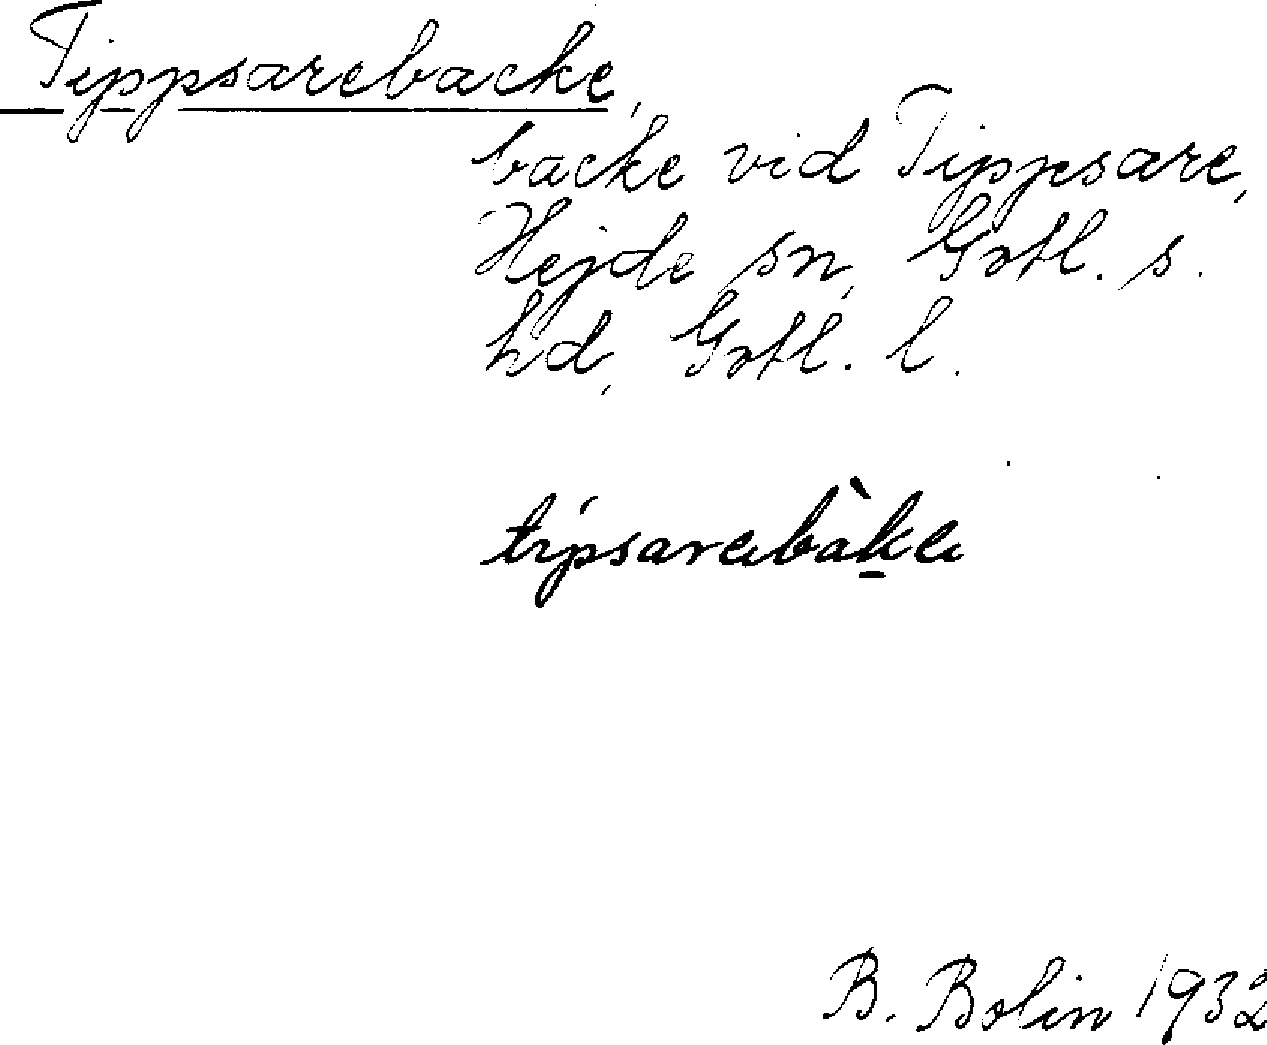 Tippsarebacke,
backe vid Tippsare,
Hejde sn, Gotl. s.
hd, Gotl. l.
tipsarebàkе
B. Bolin 1932